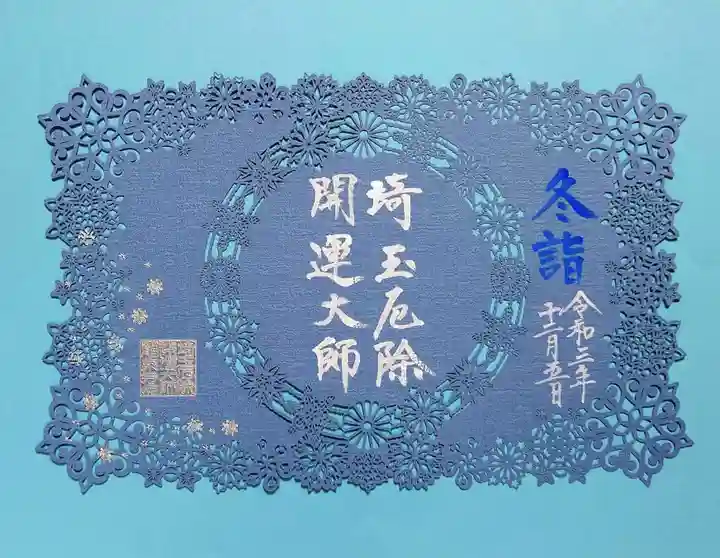 冬詣
令和三年
十二月五日
埼玉厄除
開運大師